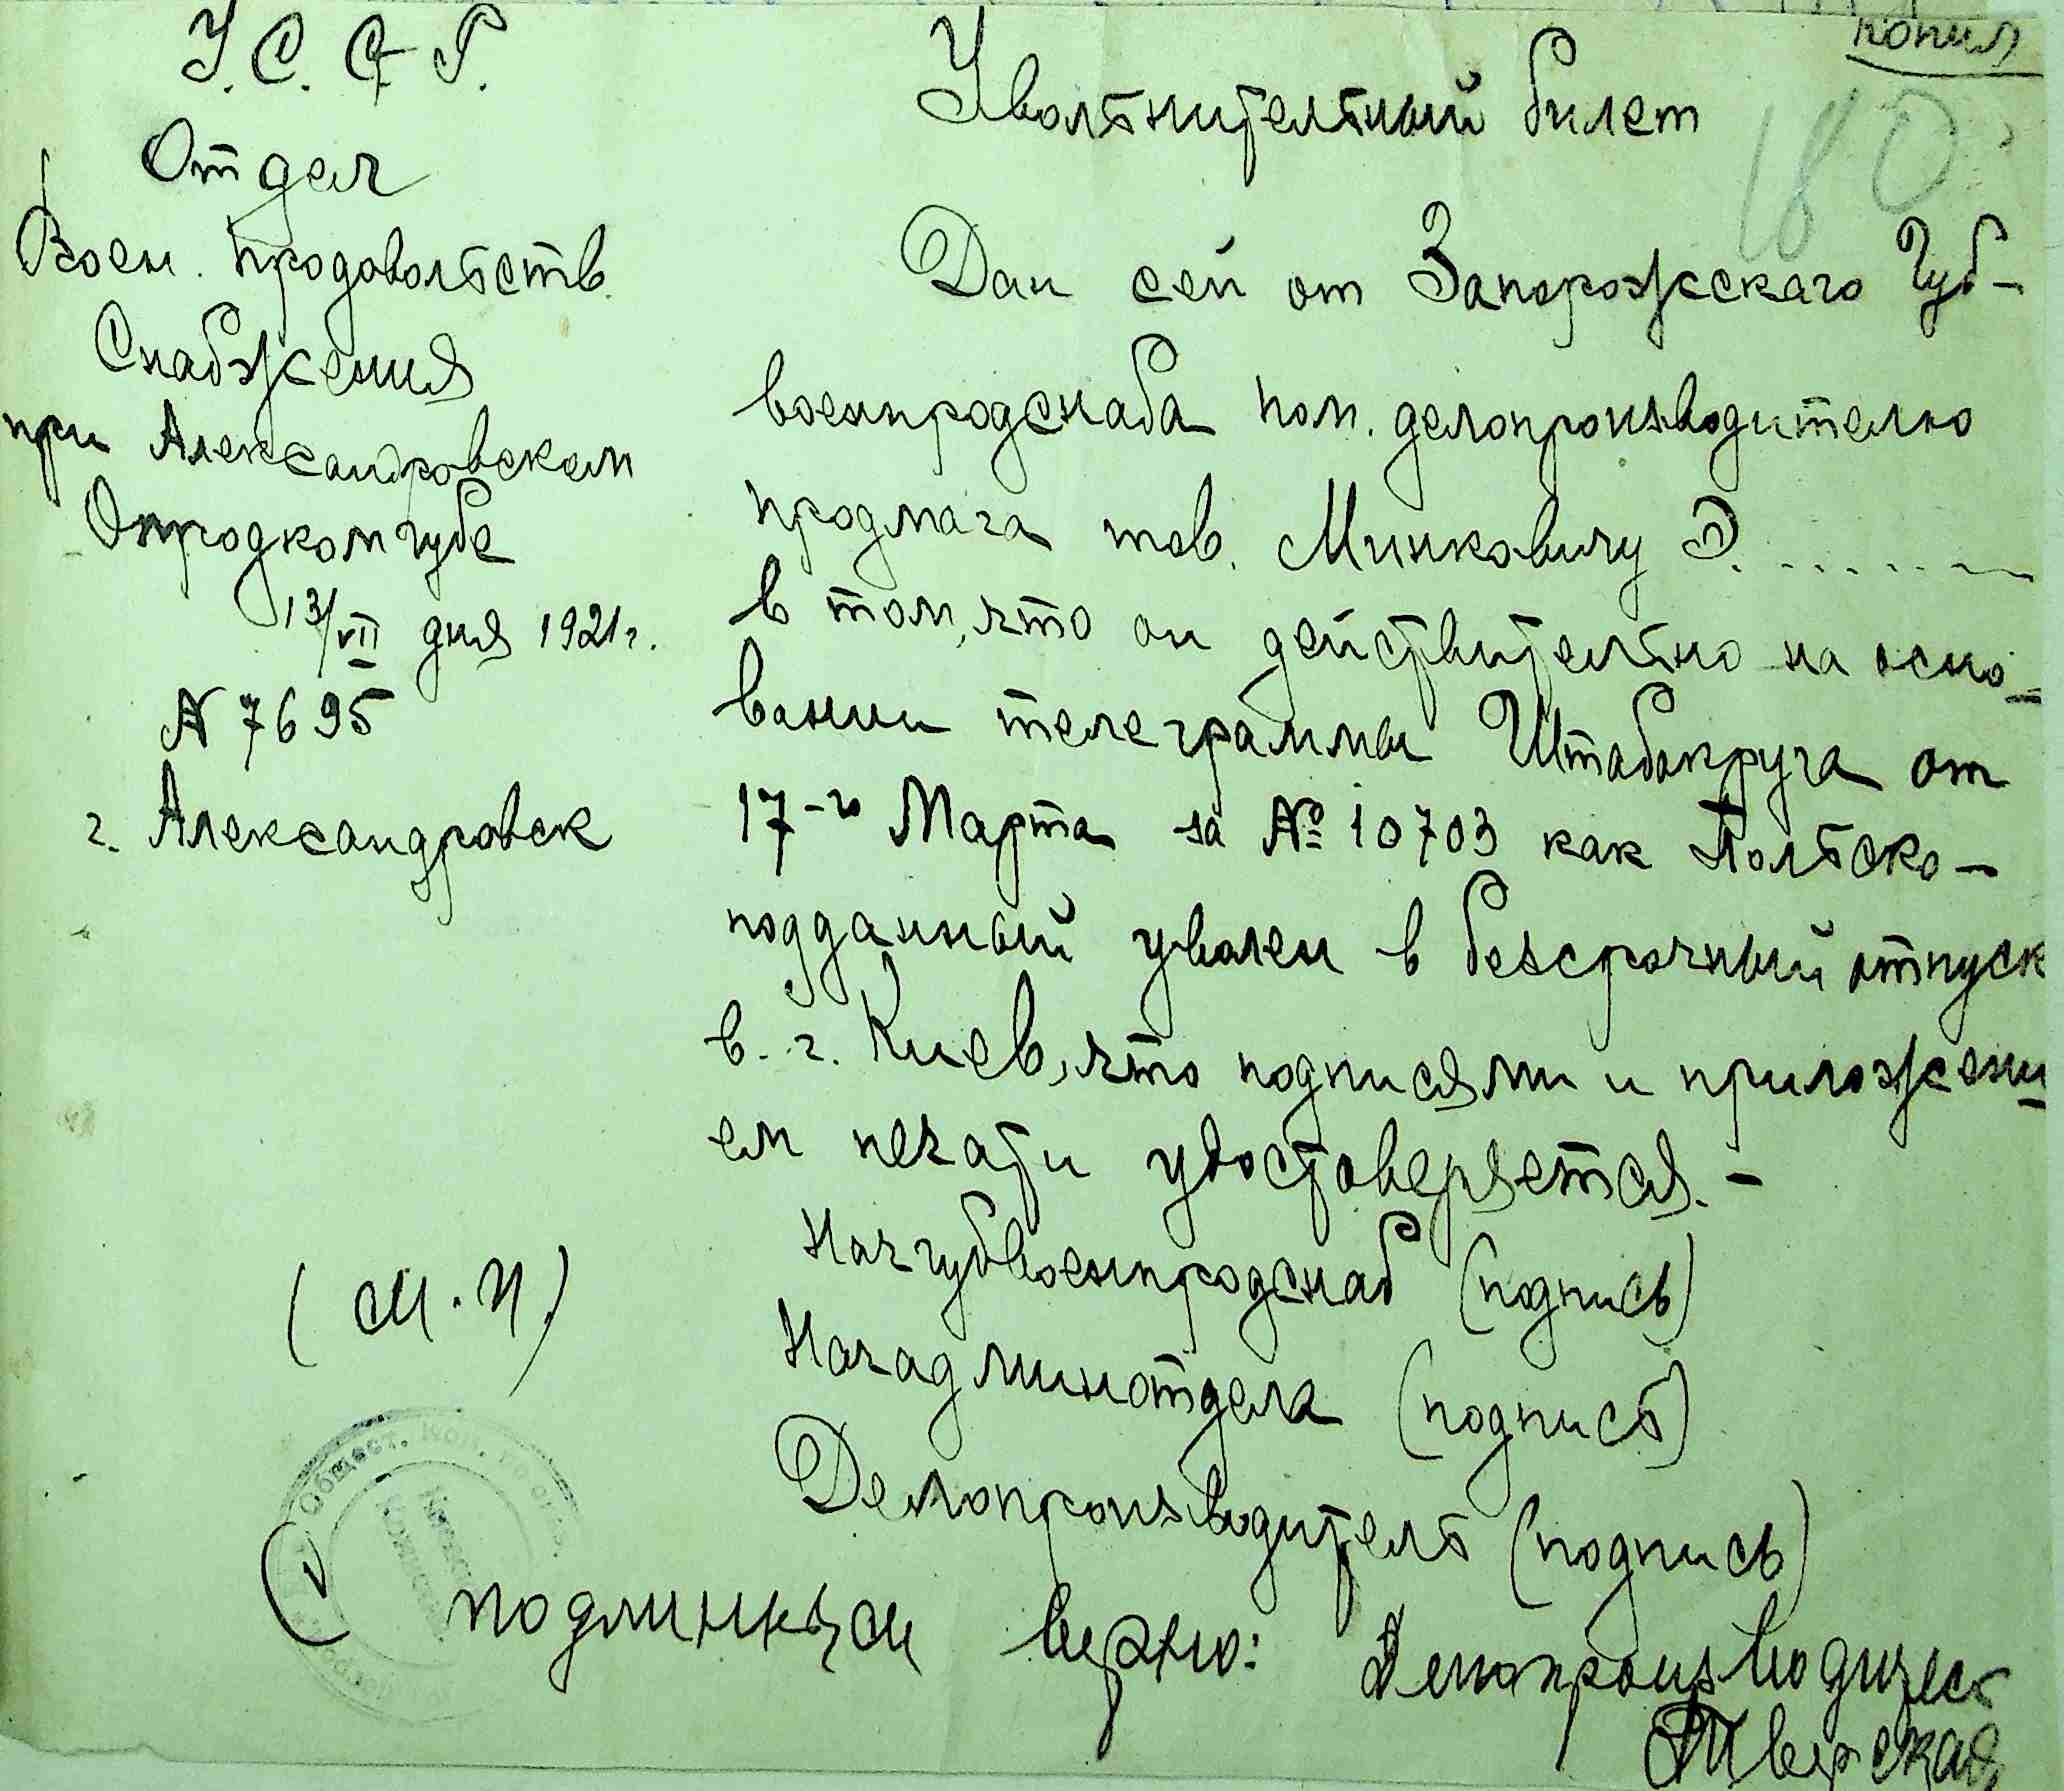 копия
180
У.С.С.Р.
Отдел
Воен. продовольств.
Снабжения
при Александровском
Опродкомгубе
13/VII дня 1921 г.
N 7695
г. Александровск
Увольнительный билет
Дан сей от Запорожскаго Губ-
военпродснаба пом. делопроизводителю
продмага тов. Минковичу Э.
в том, что он действительно на осно-
вании телеграммы Штабокруга от
17-го Марта за № 10703 как Польско-
подданный уволен в безсрочный отпуск
в. г. Киев, что подписями и приложени-
ем печати удостоверяется. -
Начгубвоенпродснаб (подпись)
Начадминотдела (подпись)
Делопроизводитель (подпись)
(М.П.)
Общест. Ком.
С подлинным верно: Делопроизводитель
Тверская